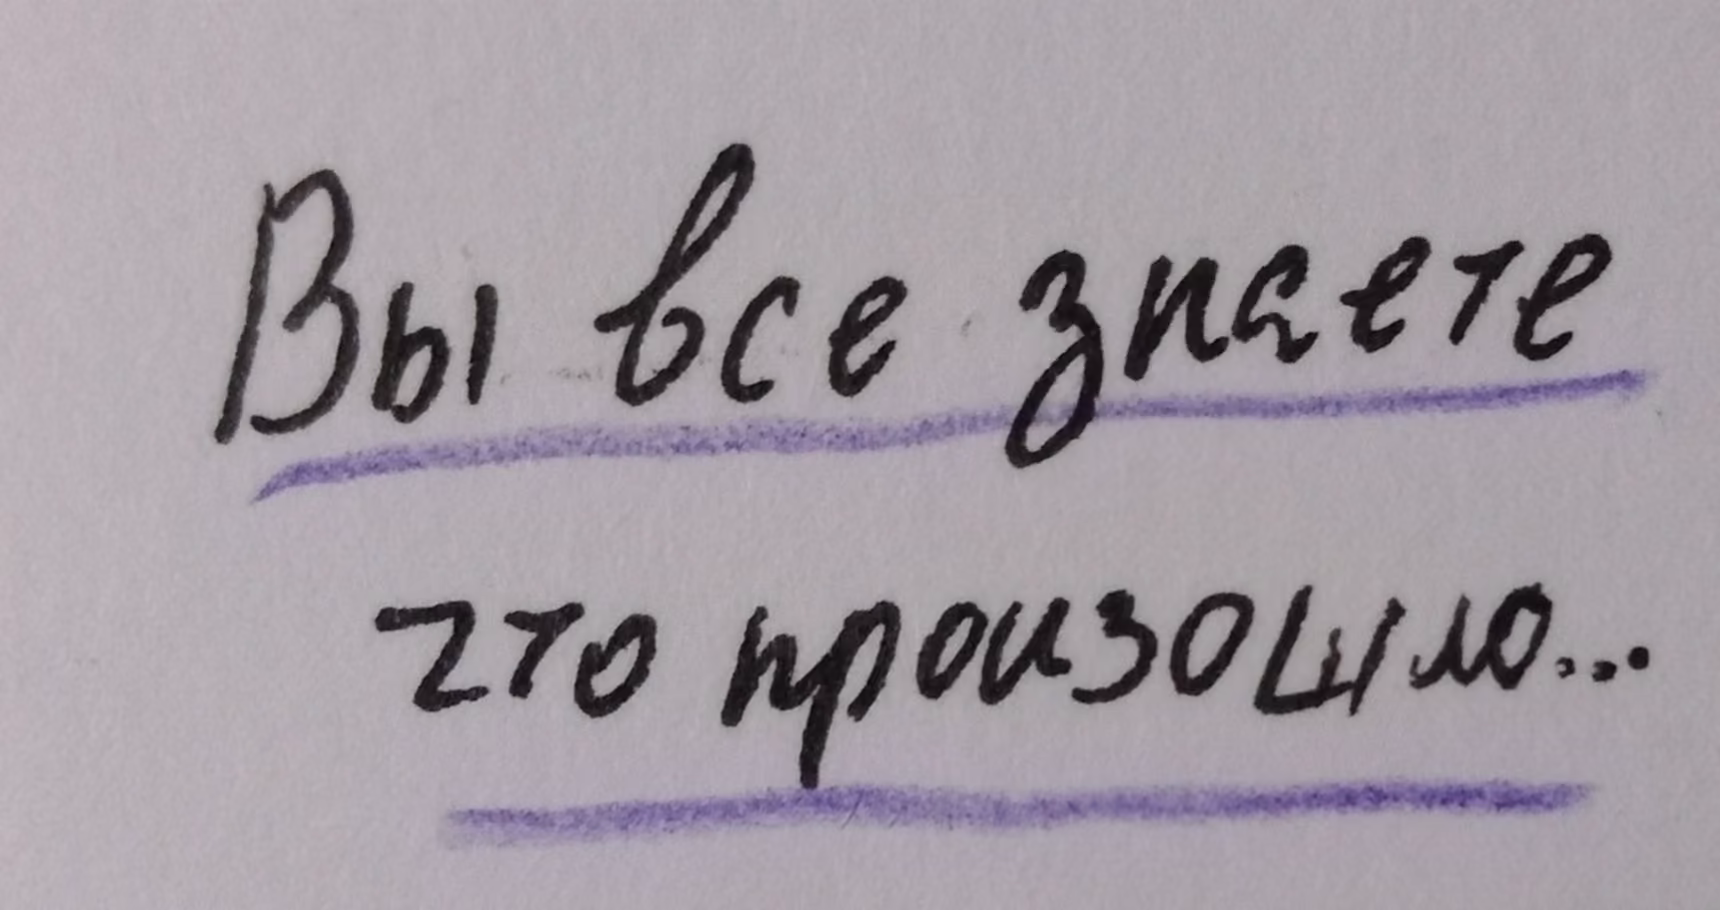 Вы все знаете
что произошло...